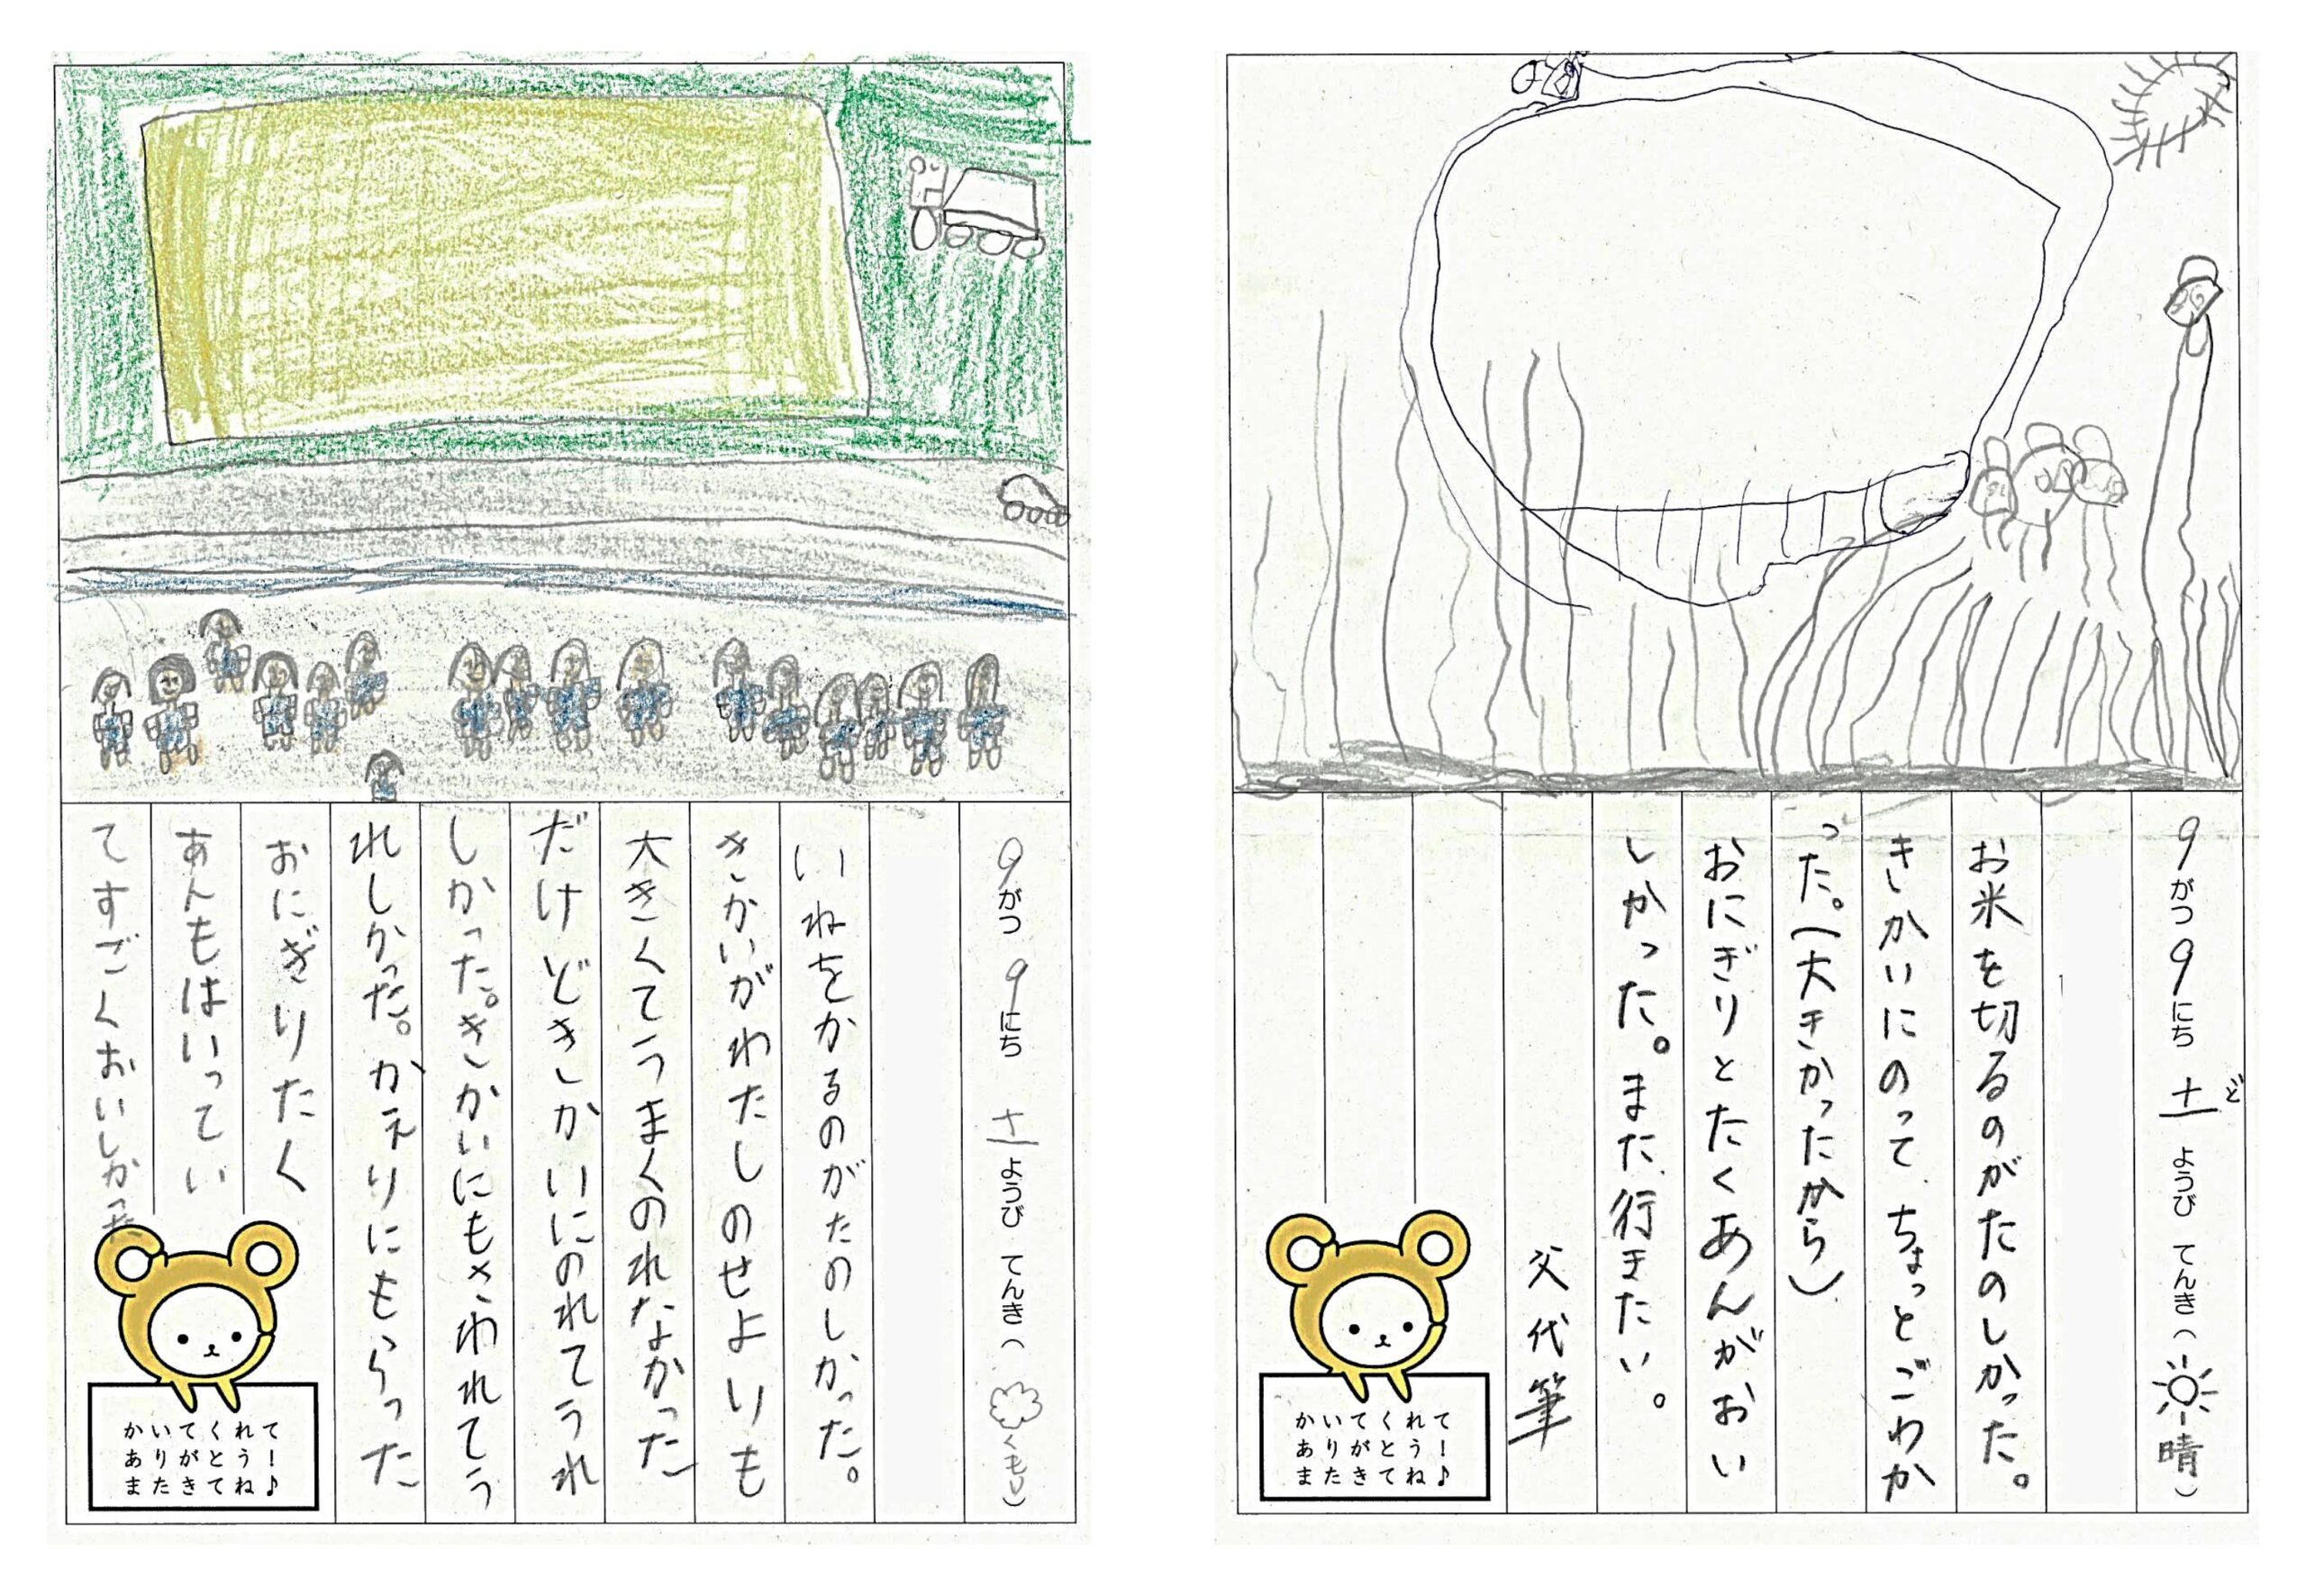 9がつ9にち 土ようび てんき(くもり)
いねをかるのがたのしかった。
きかいがわたしのせよりも
大きくてうまくのれなかった
だけどきかいにのれてうれ
しかった。きかいにもさわれてう
れしかった。かえりにもらった
おにぎりたく
あんもはいってい
てすごくおいしかった
かいてくれて
ありがとう!
またきてね♪
9がつ9にち 土ようび てんき(晴)
ど
お米を切るのがたのしかった。
きかいにのってちょっとこわか
った。(大きかったから)
おにぎりとたくあんがおい
しかった。また行きたい。
父代筆
かいてくれて
ありがとう!
またきてね♪